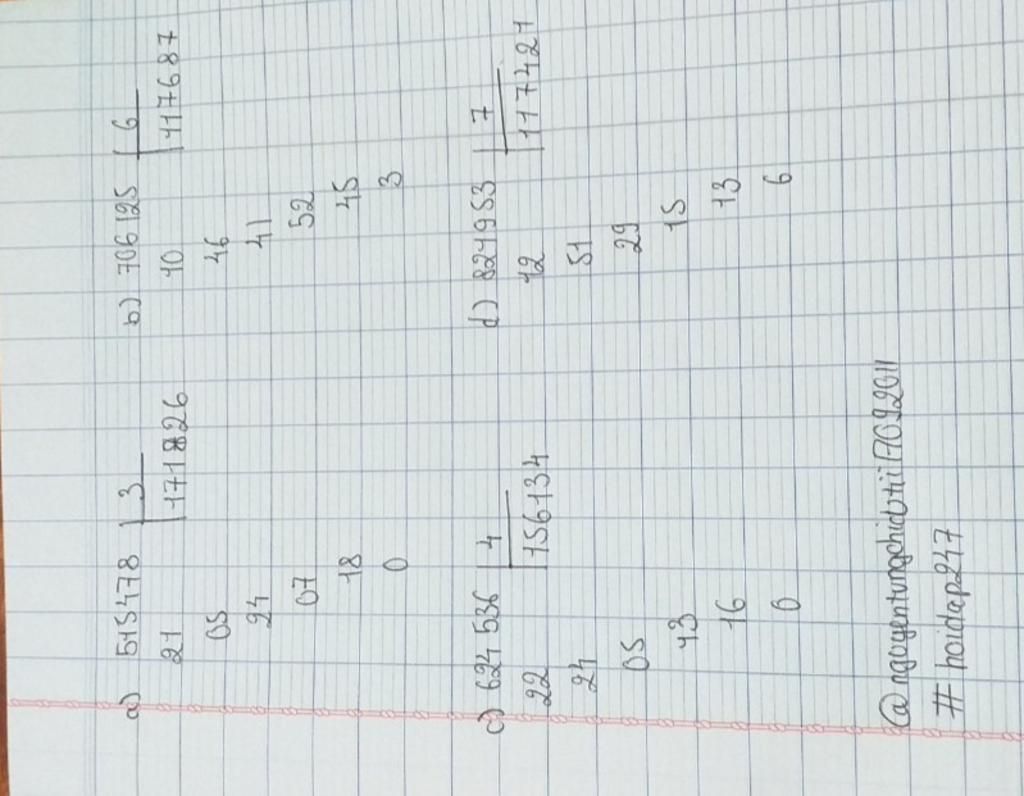 a) 515478 3
21 171826
05
24
07
18
0
b) 706125 6
10 117687
46
41
52
45
3
c) 624536 4
22 156134
24
05
13
16
0
d) 821953 7
12 117421
51
29
15
13
6
# hoidap247